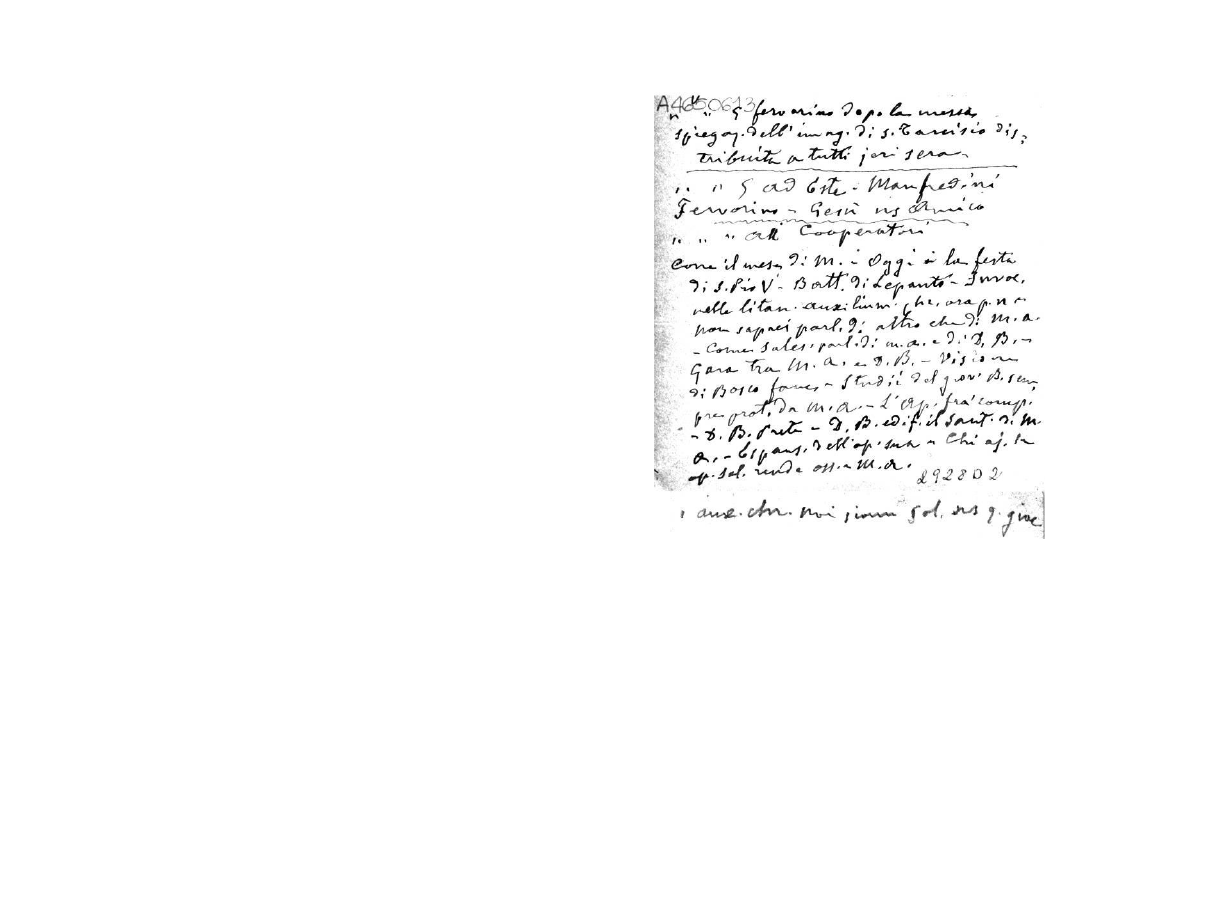 A4650613
" " 5 fervorino dopo la messa
spiegaz. dell'imag. di S. Tarcisio dis-
tribuita a tutti jeri sera
" " 5 ad Este - Manfredini
Fervorino - Gesù ns Amico
" " " Cooperatori
Corre il mese di M. - Oggi è la festa
di S. Pio V - Batt. di Lepanto - Invoc.
nelle litan. auxilium chr. ora p. n -
non saprei parl. di altro che di M. A.
- Come Sales. parl. di M. A. e di D. B. -
Gara tra M. A. e D. B. - Visione
di Bosco fanc. - Studii del giov. B. sem
pre prot. da M. A. - L'Ap. fra comp.
- D. B. Prete - D. B. edif. il Sant. di M.
A. - Espans. dell'op. sua - Chi aj. le
op. sal. rende oss. a M. A.
292802
aux. chr. noi siam sol. ns q. gioc